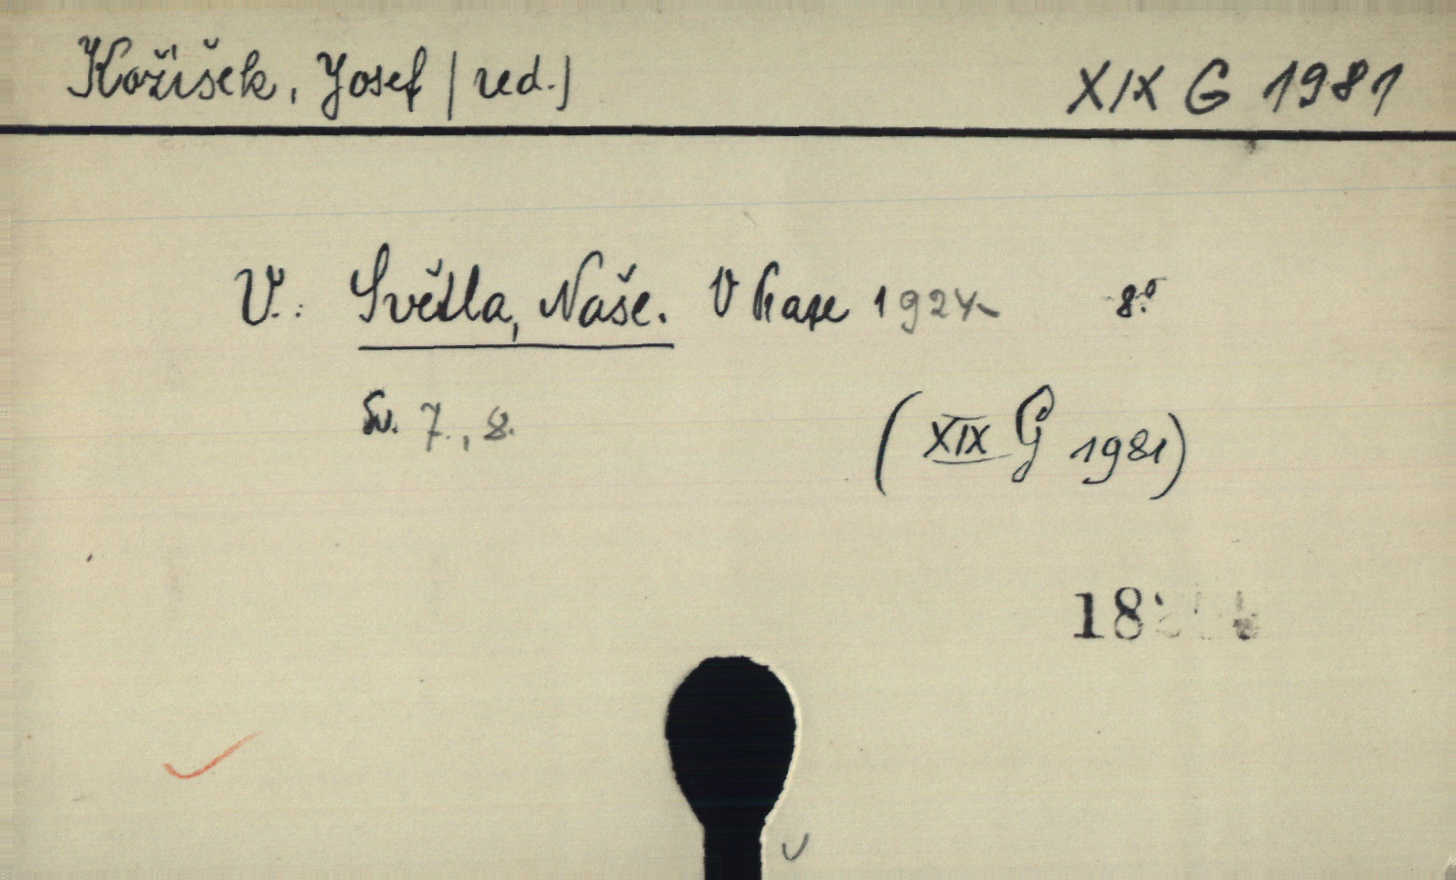 Kožíšek, Josef (red.) XIX G 1981
V.: Světla, Naše. V Praze 1924- 8°
Sv. 7., 8.
(XIX G 1981)